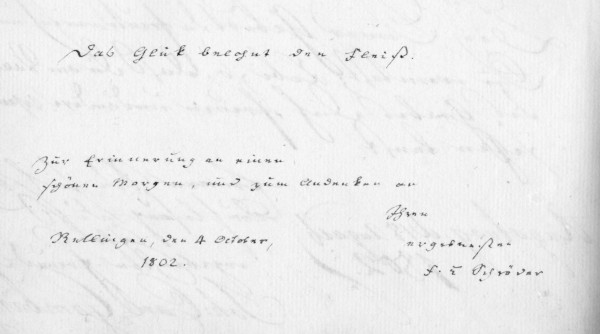 Das Glük belohnt den Fleiß.
Zur Erinnerung an einen
schönen Morgen, und zum Andenken an
Ihren
Rellingen, den 4 October,
ergebensten
1802.
F. L. Schröder